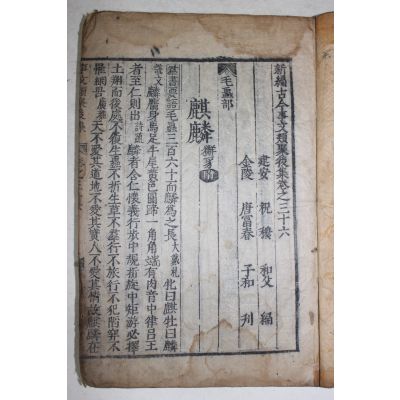 新編古今事文類聚後集卷之三十六
建安 祝穆 和父 編
金陵 唐富春 子和 刋
毛蟲部
麒麟
羣書要語毛蟲三百六十而麟為之長大戴礼牝曰麒牡曰麟
說文麟麕身馬足牛尾黃色圎蹄一角角端有肉音中律呂王
者至仁則出詩疏麟者含仁懷義行步中規折旋中矩游必擇
土翔而後處不履生蟲不折生草不羣行不旅行不犯陷穽不
罹網罟廣雅天不愛其道地不愛其寳人不愛其情故麒麟在